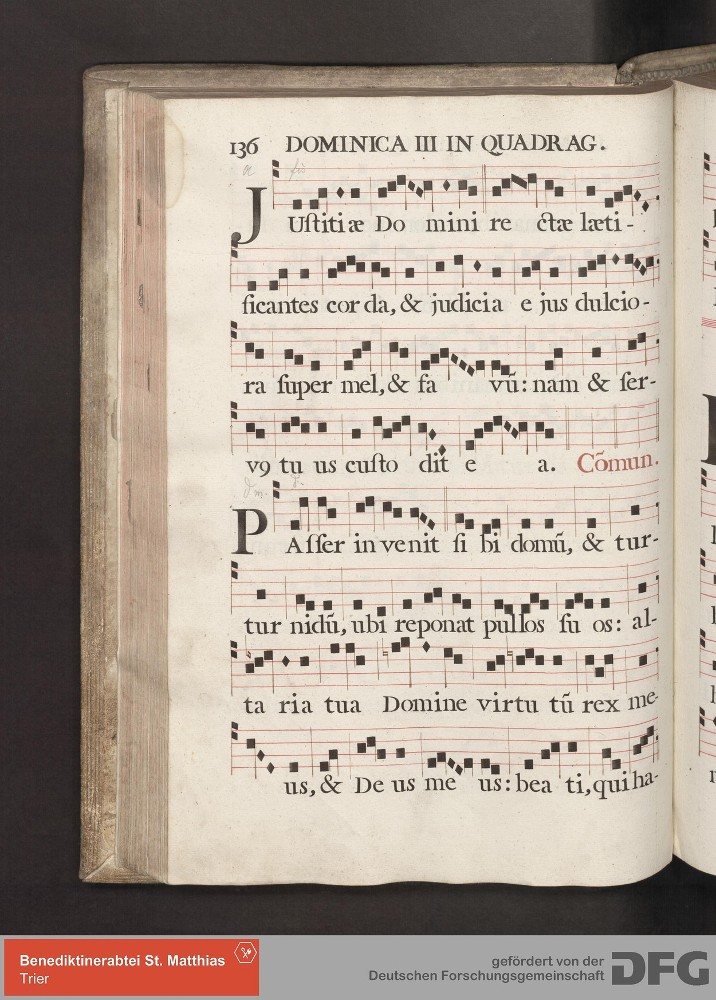 136 DOMINICA III IN QUADRAG.
JUſtitiæ Do mini re ctæ læti-
ficantes cor da, & judicia e jus dulcio-
ra ſuper mel, & fa vū: nam & ſer-
v9 tu us cuſto dit e a. Cōmun.
PAſſer in venit ſi bi domū, & tur-
tur nidū, ubi reponat pullos ſu os: al-
ta ria tua Domine virtu tū rex me-
us, & De us me us: bea ti, qui ha-
Benediktinerabtei St. Matthias
Trier
gefördert von der
Deutschen Forschungsgemeinschaft
DFG